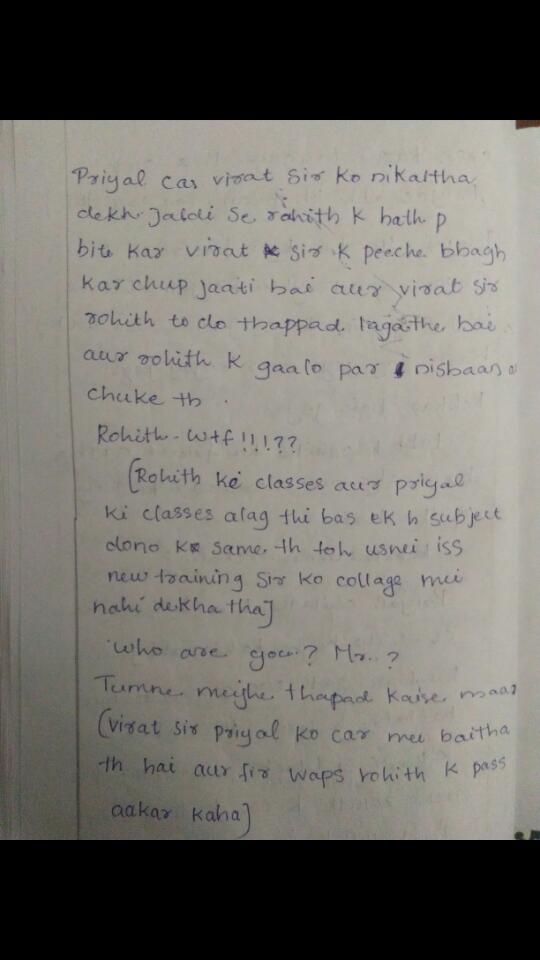 Priyal car virat sir ko nikaltha
dekh jaldi se rohith k hath p
bite kar virat sir k peeche bhagh
kar chup jaati hai aur virat sir
rohith to do thappad lagathe hai
aur rohith k gaalo par nishaan
chuke th .
Rohith - wtf !!!??
[Rohith ke classes aur priyal
ki classes alag thi bas ek h subject
dono k same th toh usnei iss
new training sir ko collage mei
nahi dekha tha]
who are you ? Mr.. ?
Tumne mujhe thapad kaise maar
(virat sir priyal ko car mei baitha
th hai aur fir waps rohith k pass
aakar kaha]